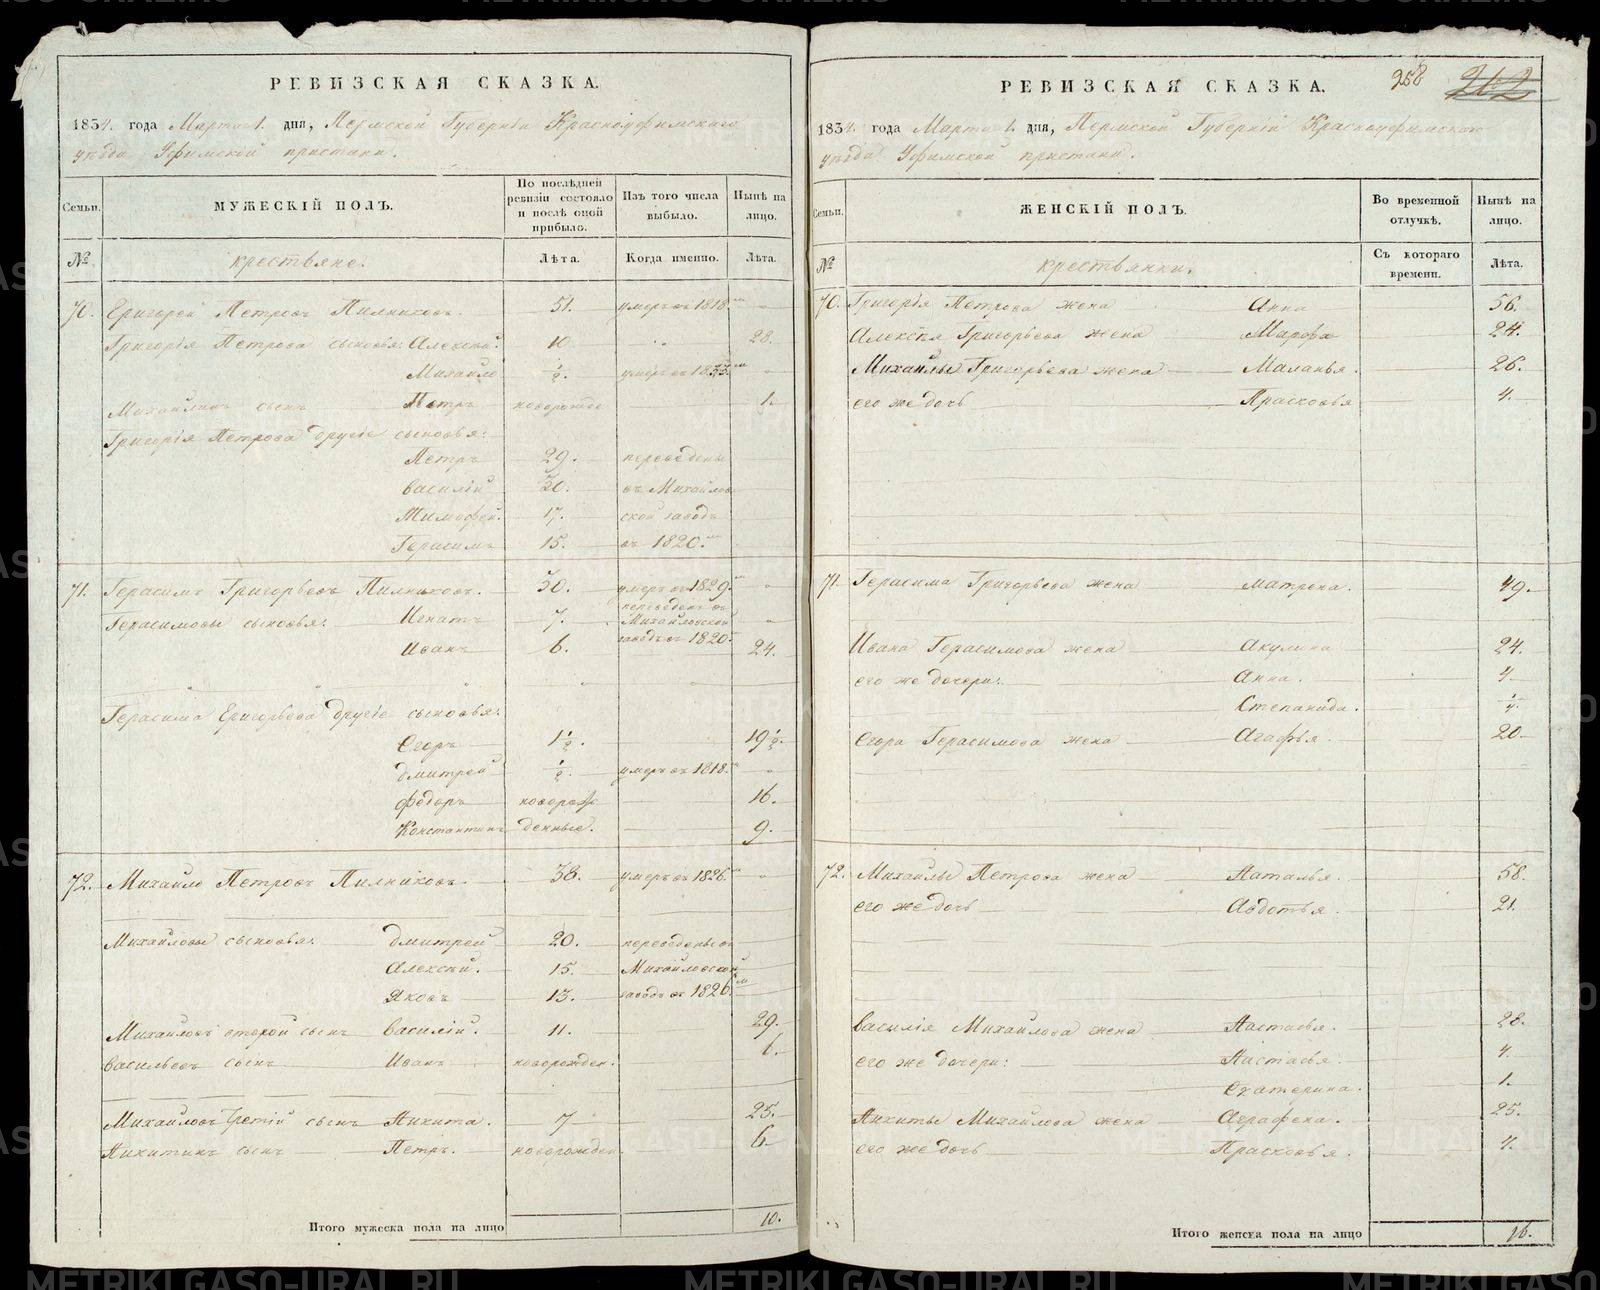 РЕВИЗСКАЯ СКАЗКА.
1834. года Марта 1. дня, Пермской Губерніи Красноуфимскаго
уѣзда Уфимской пристани.
Семьи.
МУЖЕСКІЙ ПОЛЪ.
По послѣдней ревизіи состояло и послѣ оной прибыло.
Изъ того числа выбыло.
Нынѣ на лицо.
№
крестьяне.
Лѣта.
Когда именно.
Лѣта.
70. Григорей Петровъ Пилниковъ. 51. умеръ въ 1818.
Григорія Петрова сыновья: Алексѣй. 10. 28.
Михайло ½. умеръ въ 1833.
Михайлинъ сынъ Петръ новорожде 1.
Григорія Петрова другіе сыновья:
Петръ 29. переведены
Василій 20. въ Михайлов
Тимофей. 17. ской заводъ
Герасимъ 15. въ 1820.
71. Герасимъ Григорьевъ Пилниковъ. 30. умеръ въ 1829.
Герасимовы сыновья: Игнатъ 7. переведенъ въ Михайловской заводъ въ 1820.
Иванъ 6. 24.
Герасима Григорьева другіе сыновья:
Егоръ 1½. 19½.
Дмитрей ½. умеръ въ 1818.
Федоръ новорож 16.
Константинъ денные. 9.
72. Михайло Петровъ Пилниковъ. 38. умеръ въ 1826.
Михайловы сыновья: Дмитрей 20. переведены въ
Алексѣй. 15. Михайловской
Яковъ 13. заводъ въ 1820.
Михайловъ второй сынъ Василій. 11. 29.
Васильевъ сынъ Иванъ новорожден. 6.
Михайловъ третій сынъ Никита. 7 25.
Никитинъ сынъ Петръ. новорожден. 6
Итого мужеска пола на лицо 10.
258 262
РЕВИЗСКАЯ СКАЗКА.
1834. года Марта 1. дня, Пермской Губерніи Красноуфимскаго
уѣзда Уфимской пристани.
Семьи.
ЖЕНСКІЙ ПОЛЪ.
Во временной отлучкѣ.
Нынѣ на лицо.
№
крестьянки.
Съ котораго времени.
Лѣта.
70. Григорія Петрова жена Анна 56.
Алексѣя Григорьева жена Марфа 24.
Михайлы Григорьева жена Маланья. 26.
его же дочь Прасковья 4.
71. Герасима Григорьева жена Матрена. 49.
Ивана Герасимова жена Акулина 24.
его же дочери: Анна. 4.
Степанида. ¼.
Егора Герасимова жена Агафья. 20
72. Михайлы Петрова жена Наталья. 58.
его же дочь Авдотья. 21.
Василія Михайлова жена Настасья. 28.
его же дочери: Настасья. 4.
Екатерина. 1.
Никиты Михайлова жена Аграфена. 25.
его же дочь Прасковья. 4.
Итого женска пола на лицо 16.
METRIKI.GASO-URAL.RU